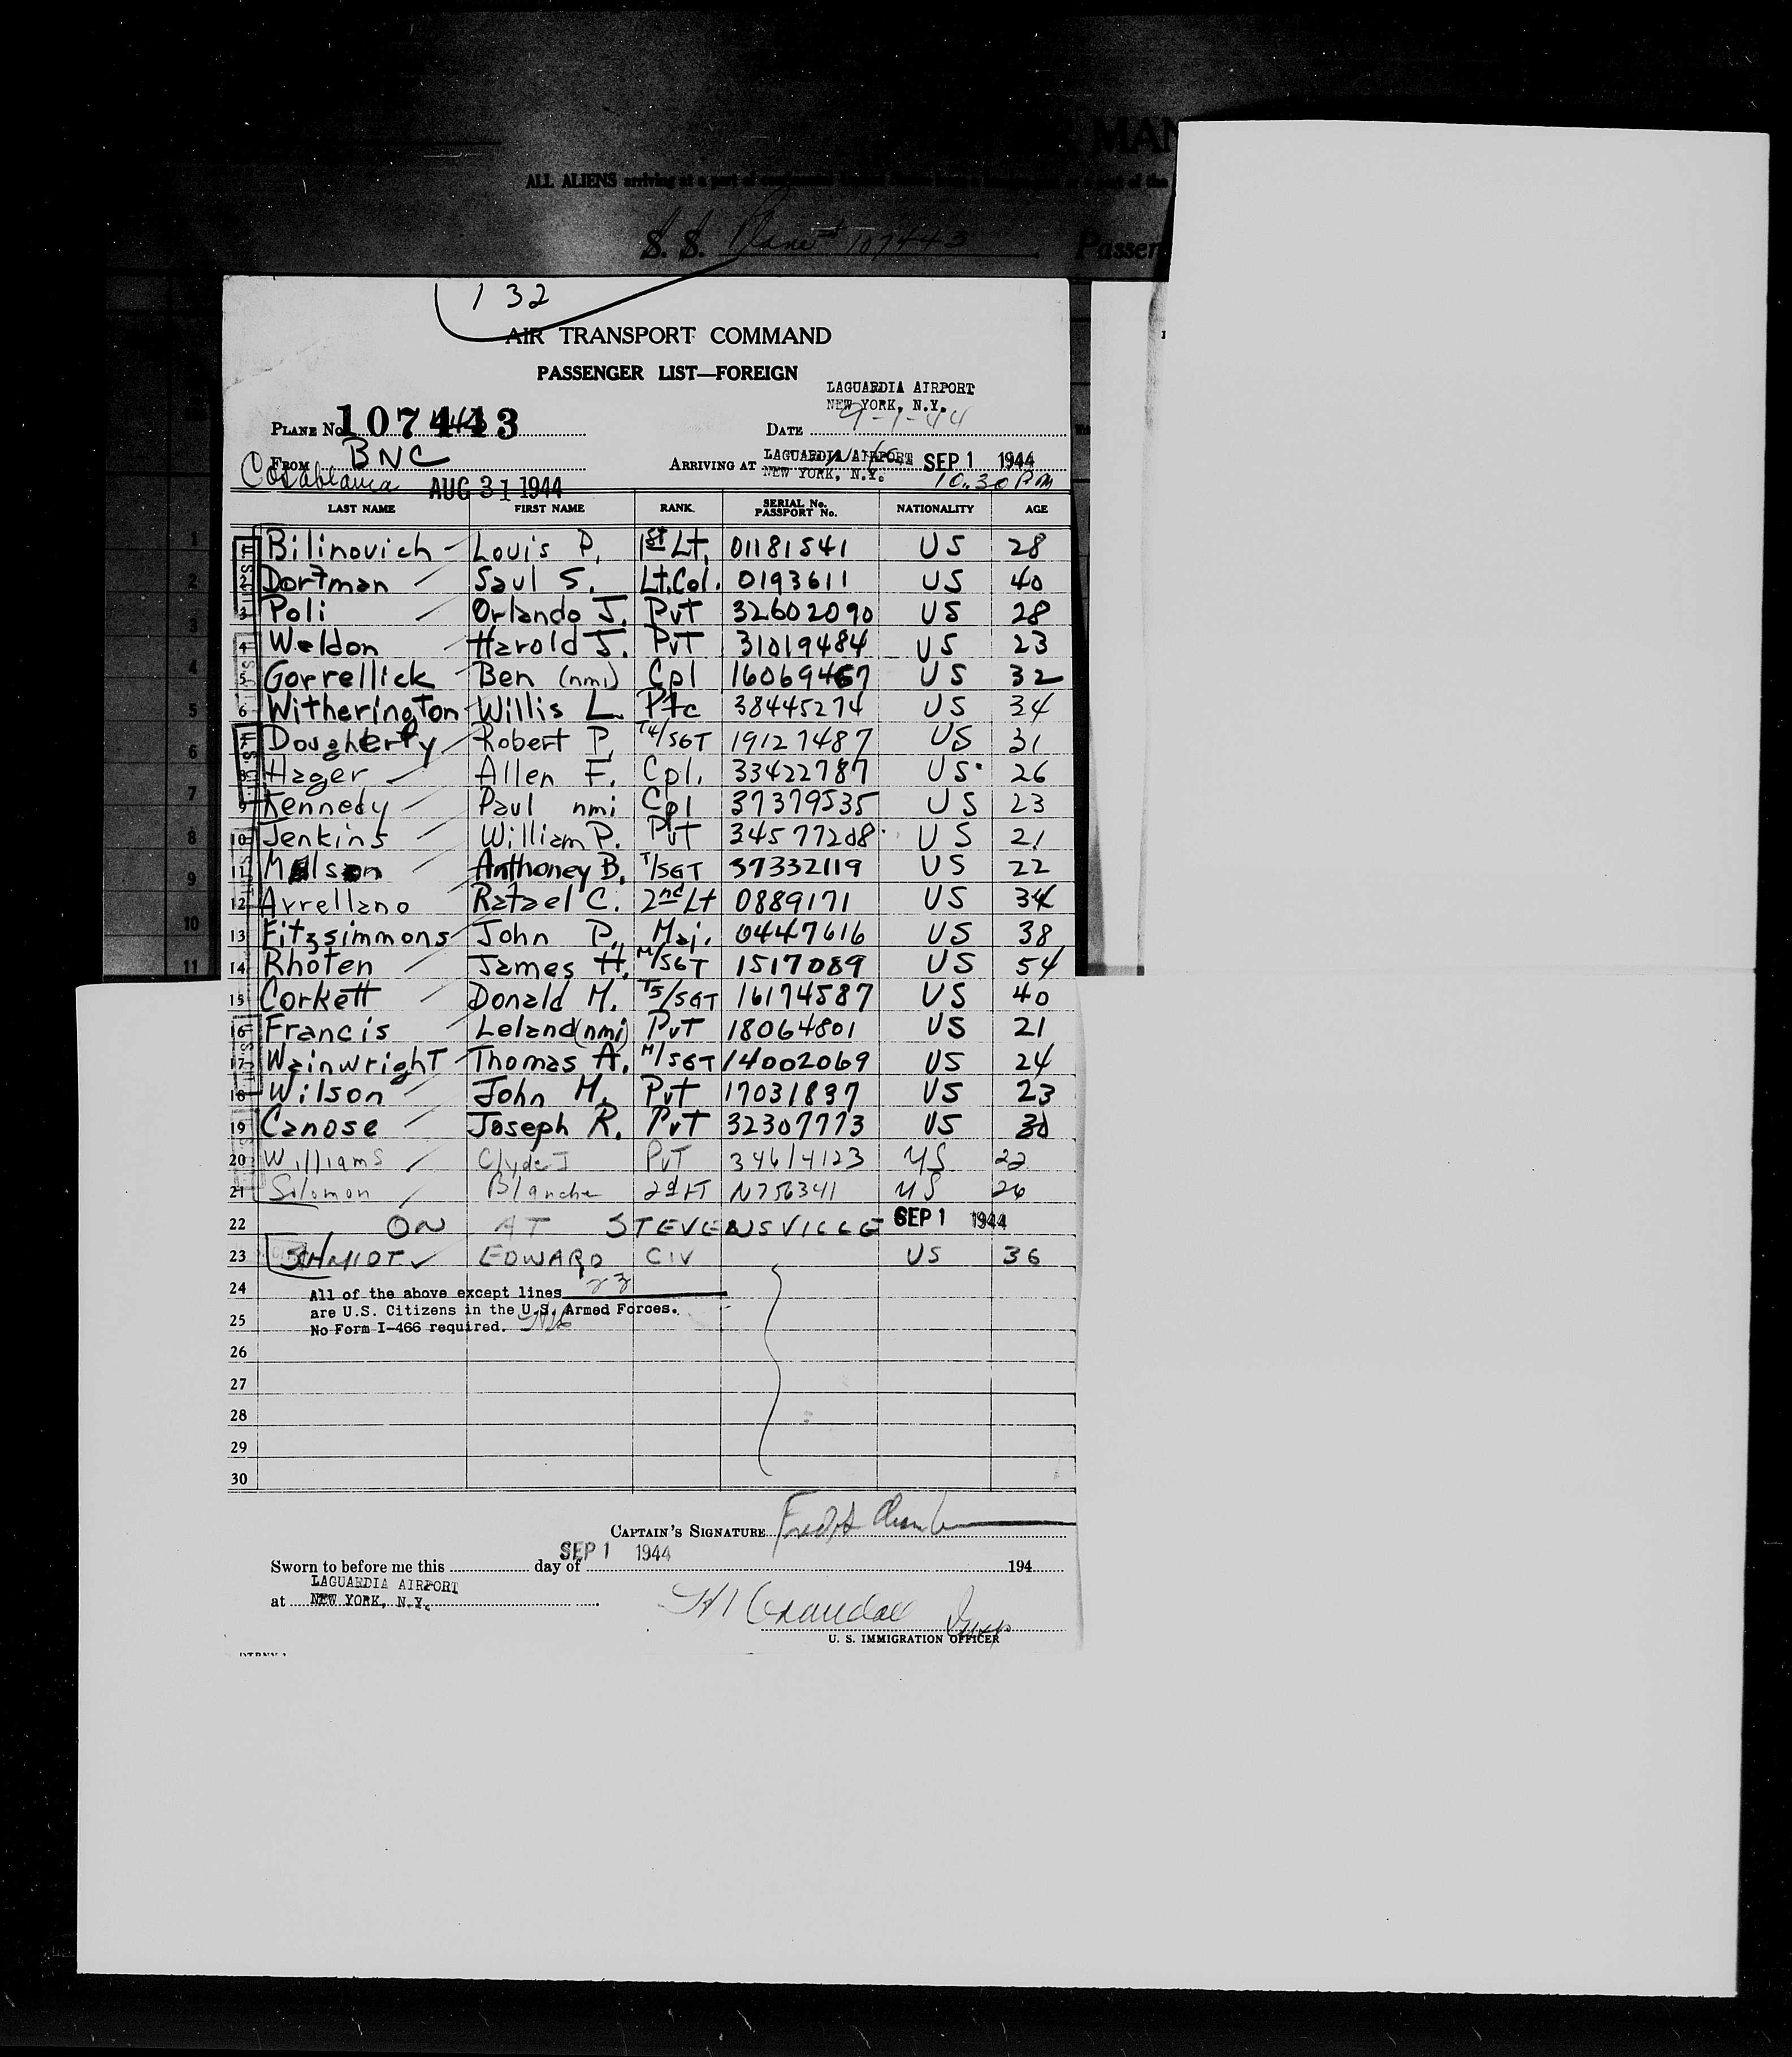 MAN
ALL ALIENS arriving at a port of
S. S. Plane # 107443 Passen
132
AIR TRANSPORT COMMAND
PASSENGER LIST—FOREIGN
LAGUARDIA AIRPORT
NEW YORK, N.Y.
PLANE No. 107443 DATE 9-1-44
FROM BNC ARRIVING AT LAGUARDIA AIRPORT SEP 1 1944
Casablanca AUG 31 1944 NEW YORK, N.Y. 10:30 PM
LAST NAME FIRST NAME RANK SERIAL No. PASSPORT No. NATIONALITY AGE
1 Bilinovich Louis P. 1st Lt. 01181541 US 28
2 Dorfman Saul S. Lt.Col. 0193611 US 40
3 Poli Orlando J. Pvt 32602090 US 28
4 Weldon Harold J. PVT 31019484 US 23
5 Gorrellick Ben (nmi) Cpl 16069467 US 32
6 Witherington Willis L. Pfc 38445274 US 34
7 Dougherty Robert P. T4/SGT 19127487 US 31
8 Hager Allen F. Cpl. 33422787 US 26
9 Kennedy Paul nmi Cpl 37379535 US 23
10 Jenkins William P. Pvt 34577208 US 21
11 Anthoney B. T/SGT 37332119 US 22
12 Arrellano Rafael C. 2nd Lt 0889171 US 34
13 Fitzsimmons John P. Maj. 0447616 US 38
14 Rhoten James H. M/SGT 1517089 US 54
15 Corkett Donald M. T5/SGT 16174587 US 40
16 Francis Leland (nmi) PvT 18064801 US 21
17 Wainwright Thomas A. M/SGT 14002069 US 24
18 Wilson John M. Pvt 17031837 US 23
19 Canose Joseph R. PvT 32307773 US 30
20 Williams Clyde J PvT 34614123 US 22
21 Solomon Blanche 2d LT N756341 US 26
22 ON AT STEVENSVILLE SEP 1 1944
23 SCHMIDT EDWARD CIV US 36
24 All of the above except lines 23
are U.S. Citizens in the U.S. Armed Forces.
25 No Form I-466 required.
26
27
28
29
30
CAPTAIN'S SIGNATURE
Sworn to before me this day of SEP 1 1944 194
at LAGUARDIA AIRPORT
NEW YORK, N.Y.
U. S. IMMIGRATION OFFICER